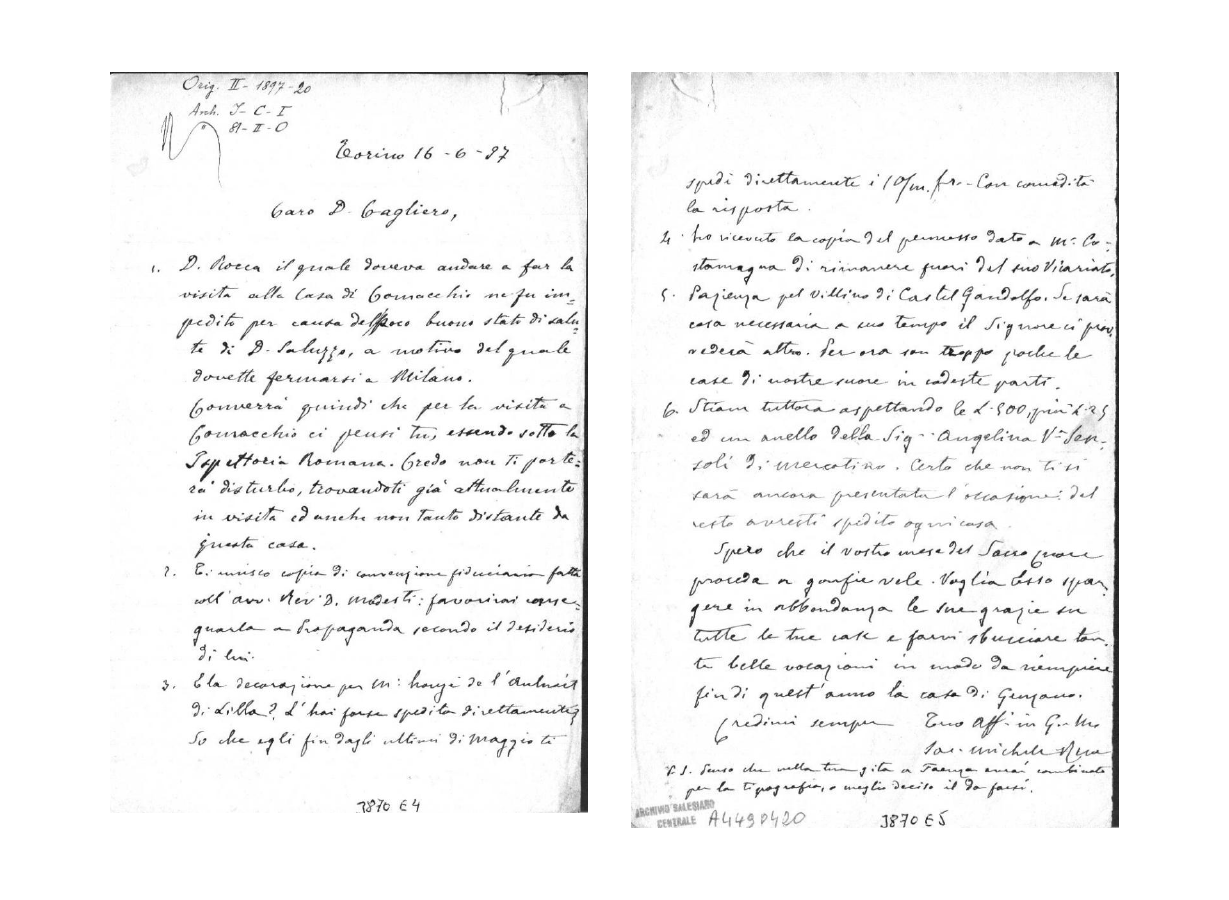 Orig. II - 1897-20
Arch. I-C-I
81-II-O
Torino 16-6-97
Caro D. Cagliero,
1. D. Rocca il quale doveva andare a far la
visita alla Casa di Comacchio ne fu im=
pedito per causa del poco buono stato di salu=
te di D. Saluzzo, a motivo del quale
dovette fermarsi a Milano.
Converrà quindi che per la visita a
Comacchio ci pensi tu, essendo sotto la
Ispettoria Romana. Credo non ti porte=
rà disturbo, trovandoti già attualmente
in visita ed anche non tanto distante da
questa casa.
2. Ti unisco copia di convenzione fiduciaria fatta
coll'avv. Rev. D. Modesti: favorirai conse=
gnarla a Propaganda secondo il desiderio
di lui.
3. E la decorazione per Mr.
di Lilla? L'hai forse spedita direttamente?
So che egli fin dagli ultimi di Maggio ti
3870 E4
spedì direttamente i 10/m. fr. - Con comodità
la risposta.
4. Ho ricevuto la copia del permesso dato a Mr. Co-
stamagna di rimanere fuori del suo Vicariato.
5. Pazienza pel villino di Castel Gandolfo. Se sarà
cosa necessaria a suo tempo il Signore ci prov
vederà altro. Per ora son troppo poche le
case di nostre suore in codeste parti.
6. Stiam tuttora aspettando le L. 500, più L. 25
ed un anello della Sig.ra Angelina Va
di Mercatino. Certo che non ti si
sarà ancora presentata l'occasione: del
resto avresti spedito ogni cosa.
Spero che il vostro mese del Sacro Cuore
proceda a gonfie vele. Voglia Esso span
gere in abbondanza le sue grazie su
tutte le tue case e farvi sbucciare tan-
te belle vocazioni in modo da riempiere
fin di quest'anno la casa di Genzano.
Credimi sempre Tuo Aff. in G. e M.
Sac. Michele Rua
P.S. Penso che nella tua gita a Faenza avrai combinato
per la tipografia, o meglio deciso il da farsi.
ARCHIVIO SALESIANO
CENTRALE
A4490420
3870 E5